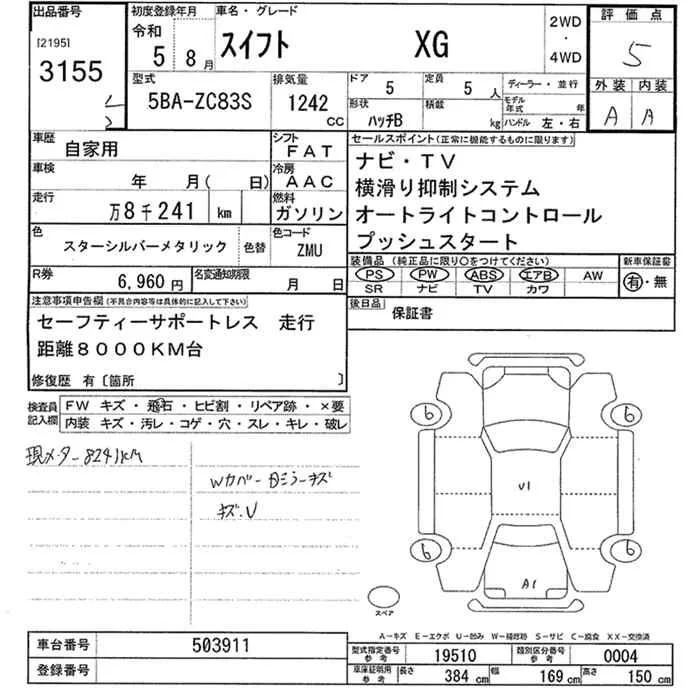 出品番号
[2195]
3155
初度登録年月
令和
5 8月
車名・グレード
スイフト XG
2WD
・
4WD
評価点
5
外装 内装
A A
型式
5BA-ZC83S
排気量
1242
CC
ドア
5
定員
5 人
ディーラー・並行
形状
ハッチB
積載
kg
モデル年式 年
ハンドル 左・右
車歴
自家用
シフト
FAT
車検
年 月( 日)
冷房
AAC
走行
万8千241 km
燃料
ガソリン
色
スターシルバーメタリック
色替
色コード
ZMU
R券
6,960円
名変通知期限
月 日
セールスポイント(正常に機能するものに限ります)
ナビ・TV
横滑り抑制システム
オートライトコントロール
プッシュスタート
装備品(純正品に限り○をつけてください)
PS PW ABS エアB AW
SR ナビ TV カワ
新車保証書
有・無
後日品
保証書
注意事項申告欄(不具合内容等は具体的に記入して下さい)
セーフティーサポートレス 走行
距離8000KM台
修復歴 有〔箇所 〕
検査員記入欄
FW キズ・飛石・ヒビ割・リペア跡・×要
内装 キズ・汚レ・コゲ・穴・スレ・キレ・破レ
現メーター8241KM
Wカバー・Bミラーキズ
キズ.U
6 6
U1
6 6
A1
スペア
A-キズ E-エクボ U-凹み W-補修跡 S-サビ C-腐食 XX-交換済
車台番号
503911
登録番号
型式指定番号
参考
19510
類別区分番号
参考
0004
車庫証明用
参考
長さ 384 cm 幅 169 cm 高さ 150 cm